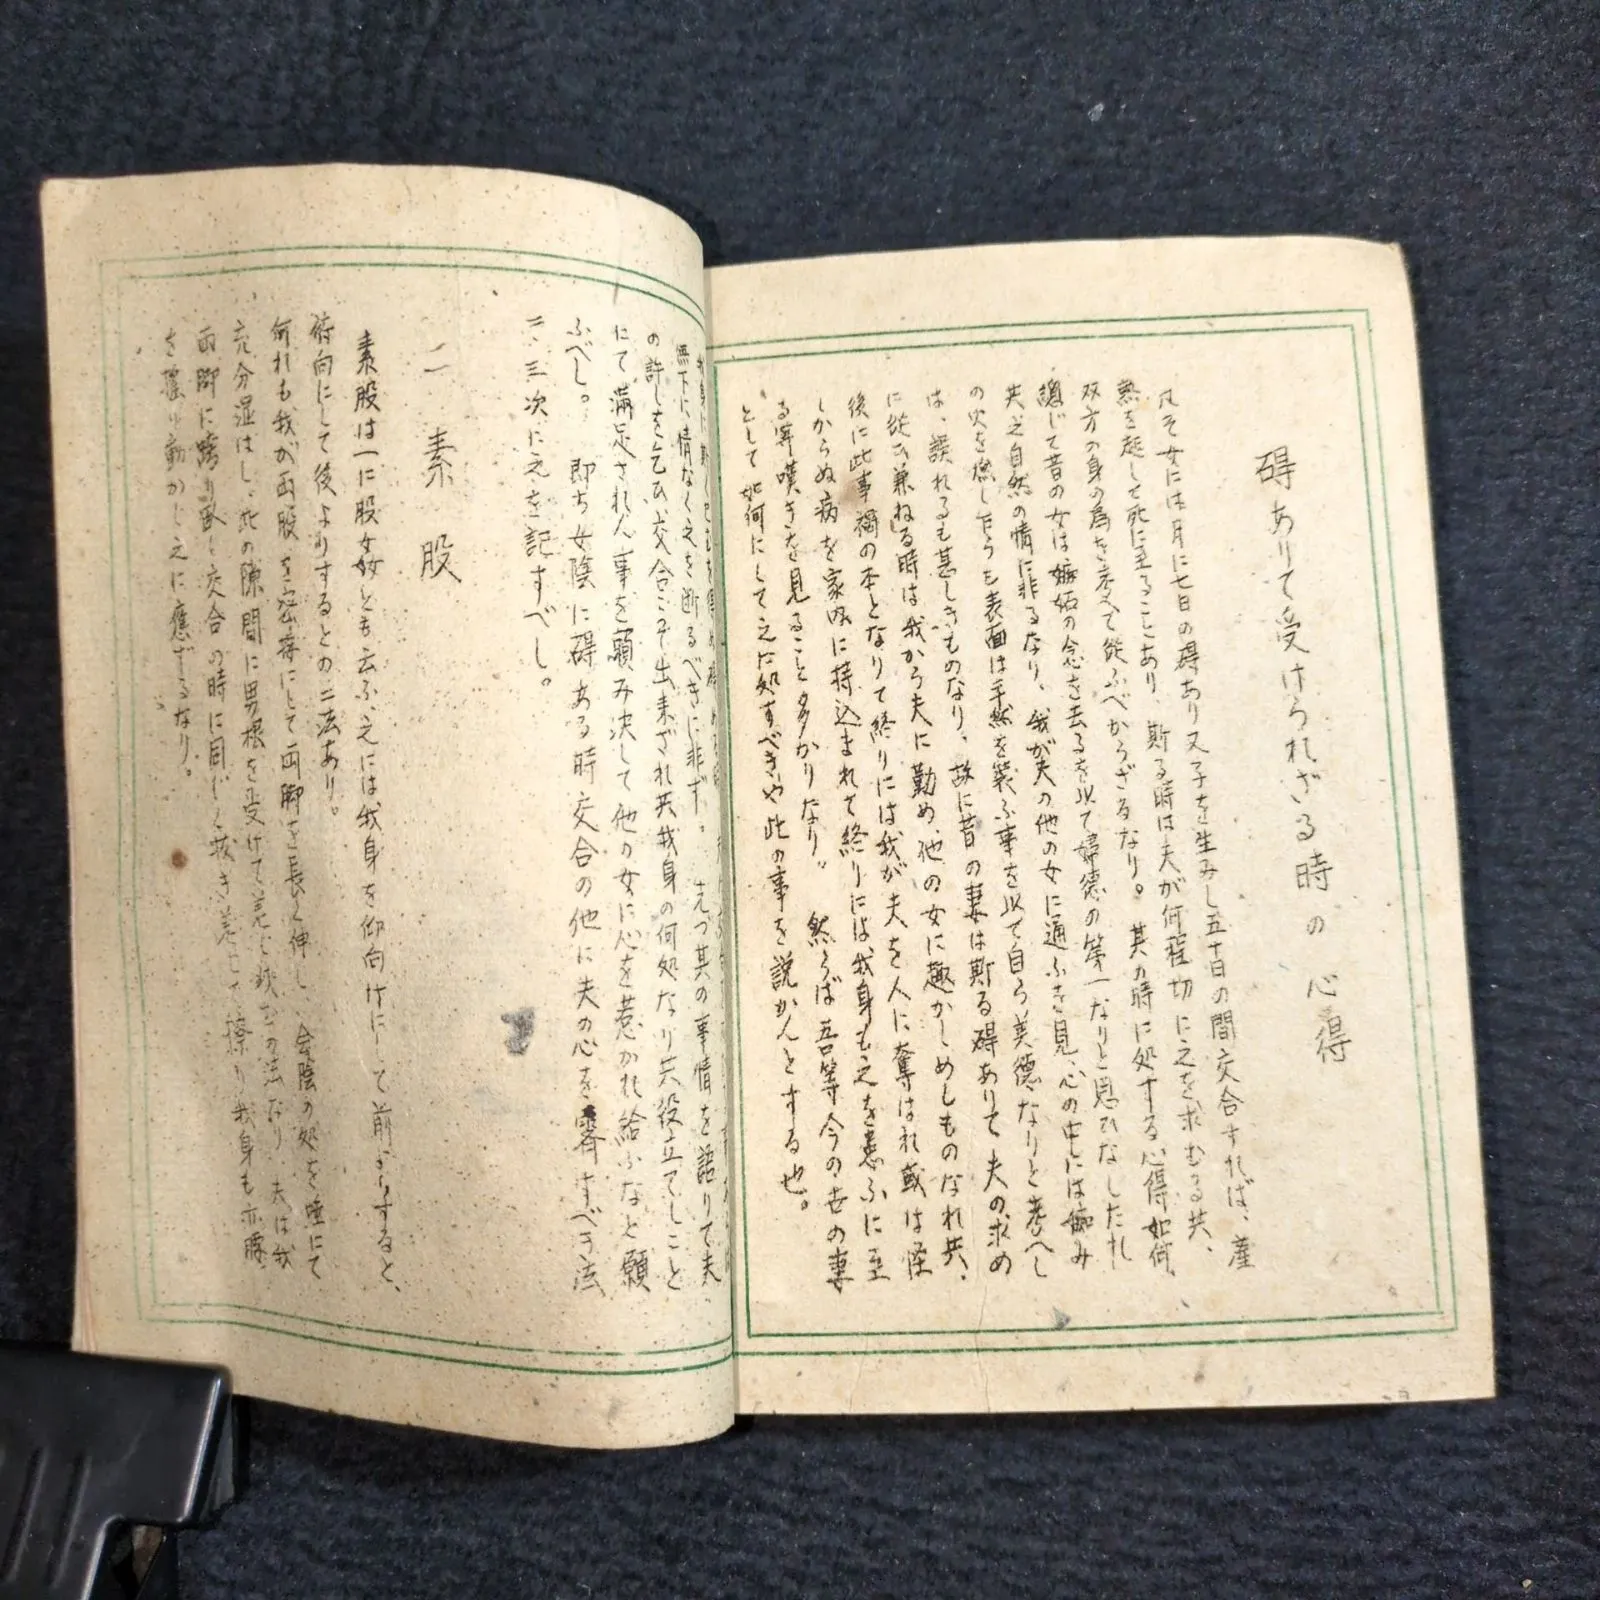 碍ありて受けられざる時の心得
凡そ女には月に七日の碍あり又子を生みし五十日の間交合すれば、産
熱を起して死に至ることあり、斯る時は夫が何程切に之を求むる共、
双方の身の為を考へて従ふべからざるなり。其の時に処する心得如何、
総じて昔の女は嫉妬の念を去るを以て婦徳の第一なりと思ひなしたれ
共之自然の情に非るなり、我が夫の他の女に通ふを見、心の中には痴み
の火を燃し乍らも表面は手然を装ふ事を以て自ら美徳なりと考へし
は、誤れるも甚しきものなり、故に昔の妻は斯る碍ありて夫の求め
に従ひ兼ねる時は我から夫に勤め、他の女に趣かしめしものなれ共、
後に此事禍の本となりて終りには我が夫を人に奪はれ或は怪
しからぬ病を家内に持込まれて終りには我身も之を患ふに至
る等嘆きを見ること多かりなり〃 然らば吾等今の世の妻
として如何にして之に処すべきや此の事を説かんとする也。
無下に情なく之を断るべきに非ず。先づ其の事情を語りて夫
の許しを乞ひ、交合こそ出来ざれ共我身の何処なり共役立てしこと
にて満足されん事を願み決して他の女に心を惹かれ給ふなと願
ふべし。 即ち女陰に碍ある時交合の他に夫の心を齊すべき法
二、三次に之を記すべし。
二 素股
素股は一に股女妶とも云ふ、之には我身を仰向けにして前からすると、
俯向にして後よりするとの二法あり。
何れも我が両股を密着にして両脚を長く伸し、会陰の処を唾にて
充分湿はし、此の隙間に男根を受けて差し挟むの法なり、夫は我
両脚に跨り臥し交合の時に同じく抜き差して擦り我身も亦腰
を揺り動かし之に應ずるなり。